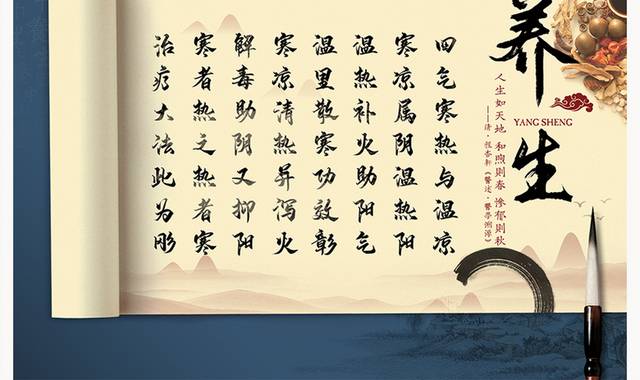 养生
YANG SHENG
人生如天地 和煦则春 惨郁则秋
——清·程杏轩《醫述·醫學溯源》
四气寒热与温凉
寒凉属阴温热阳
温热补火助阳气
温里散寒功效彰
寒凉清热并泻火
解毒助阴又抑阳
寒者热之热者寒
治疗大法此为彤